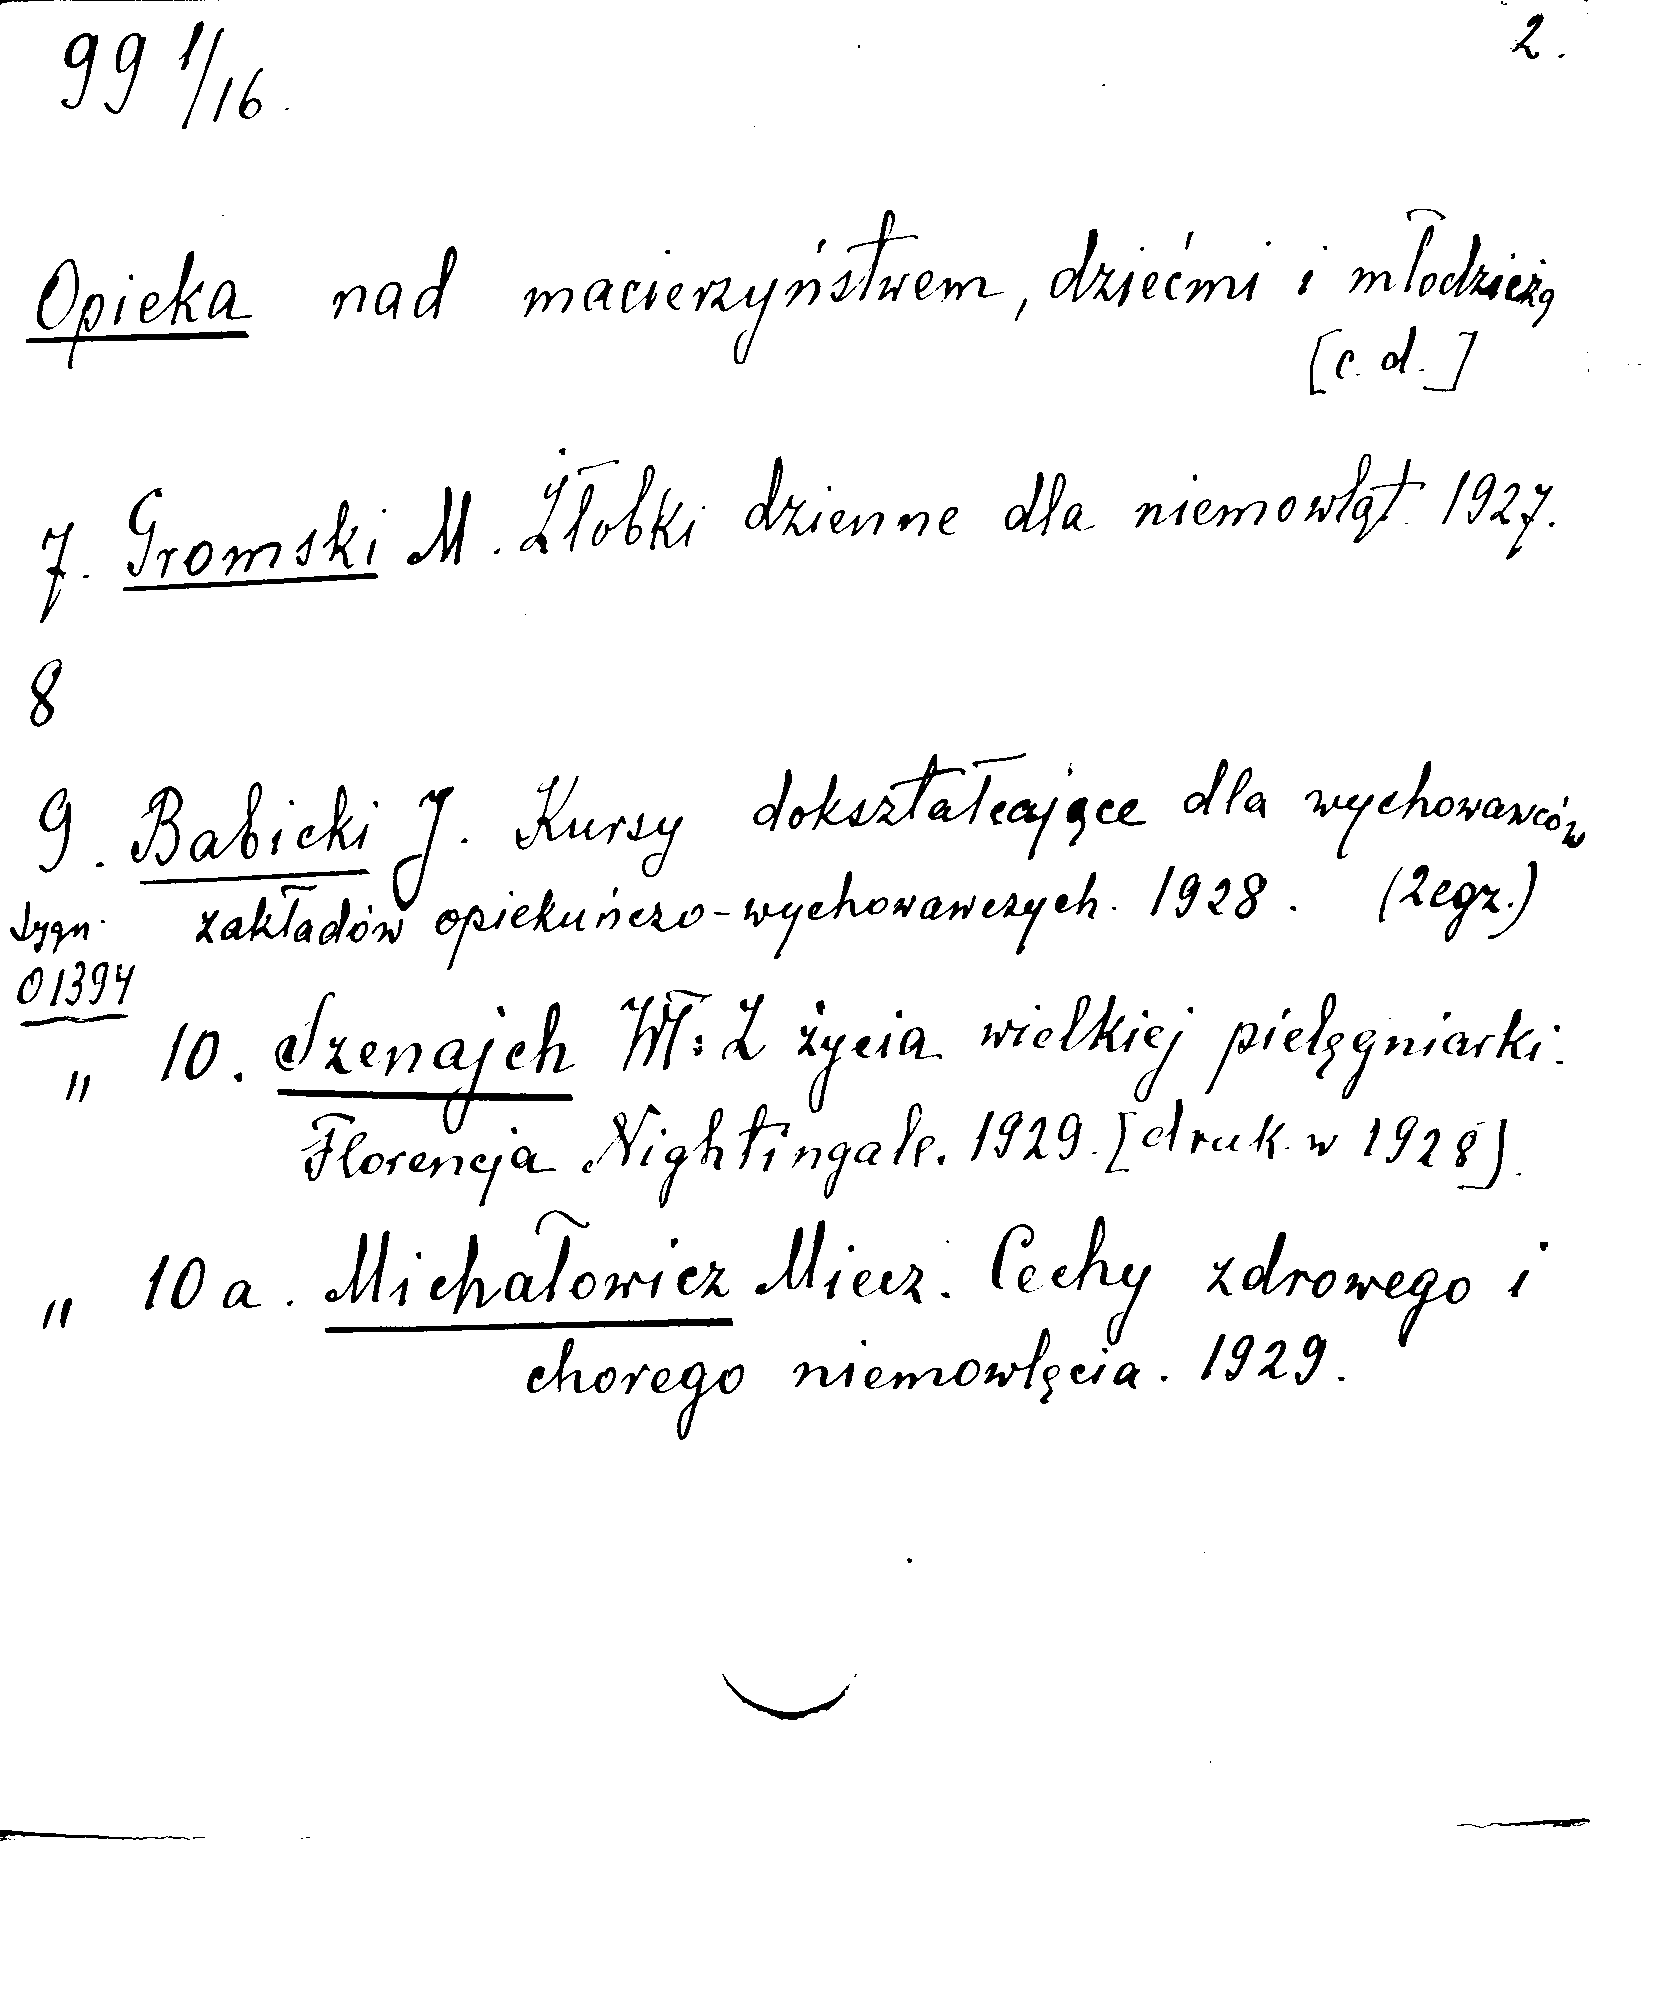 99 1/16. 2.
Opieka nad macierzyństwem, dziećmi i młodzieżą
[c. d.]
7. Gromski M. Żłobki dzienne dla niemowląt. 1927.
8
9. Babicki J. Kursy dokształcające dla wychowawców
sygn. zakładów opiekuńczo-wychowawczych. 1928. (2egz.)
01394
" 10. Szenajch Wł: Z życia wielkiej pielęgniarki.
Florencja Nightingale. 1929. [druk. w 1928].
" 10a. Michałowicz Miecz. Cechy zdrowego i
chorego niemowlęcia. 1929.